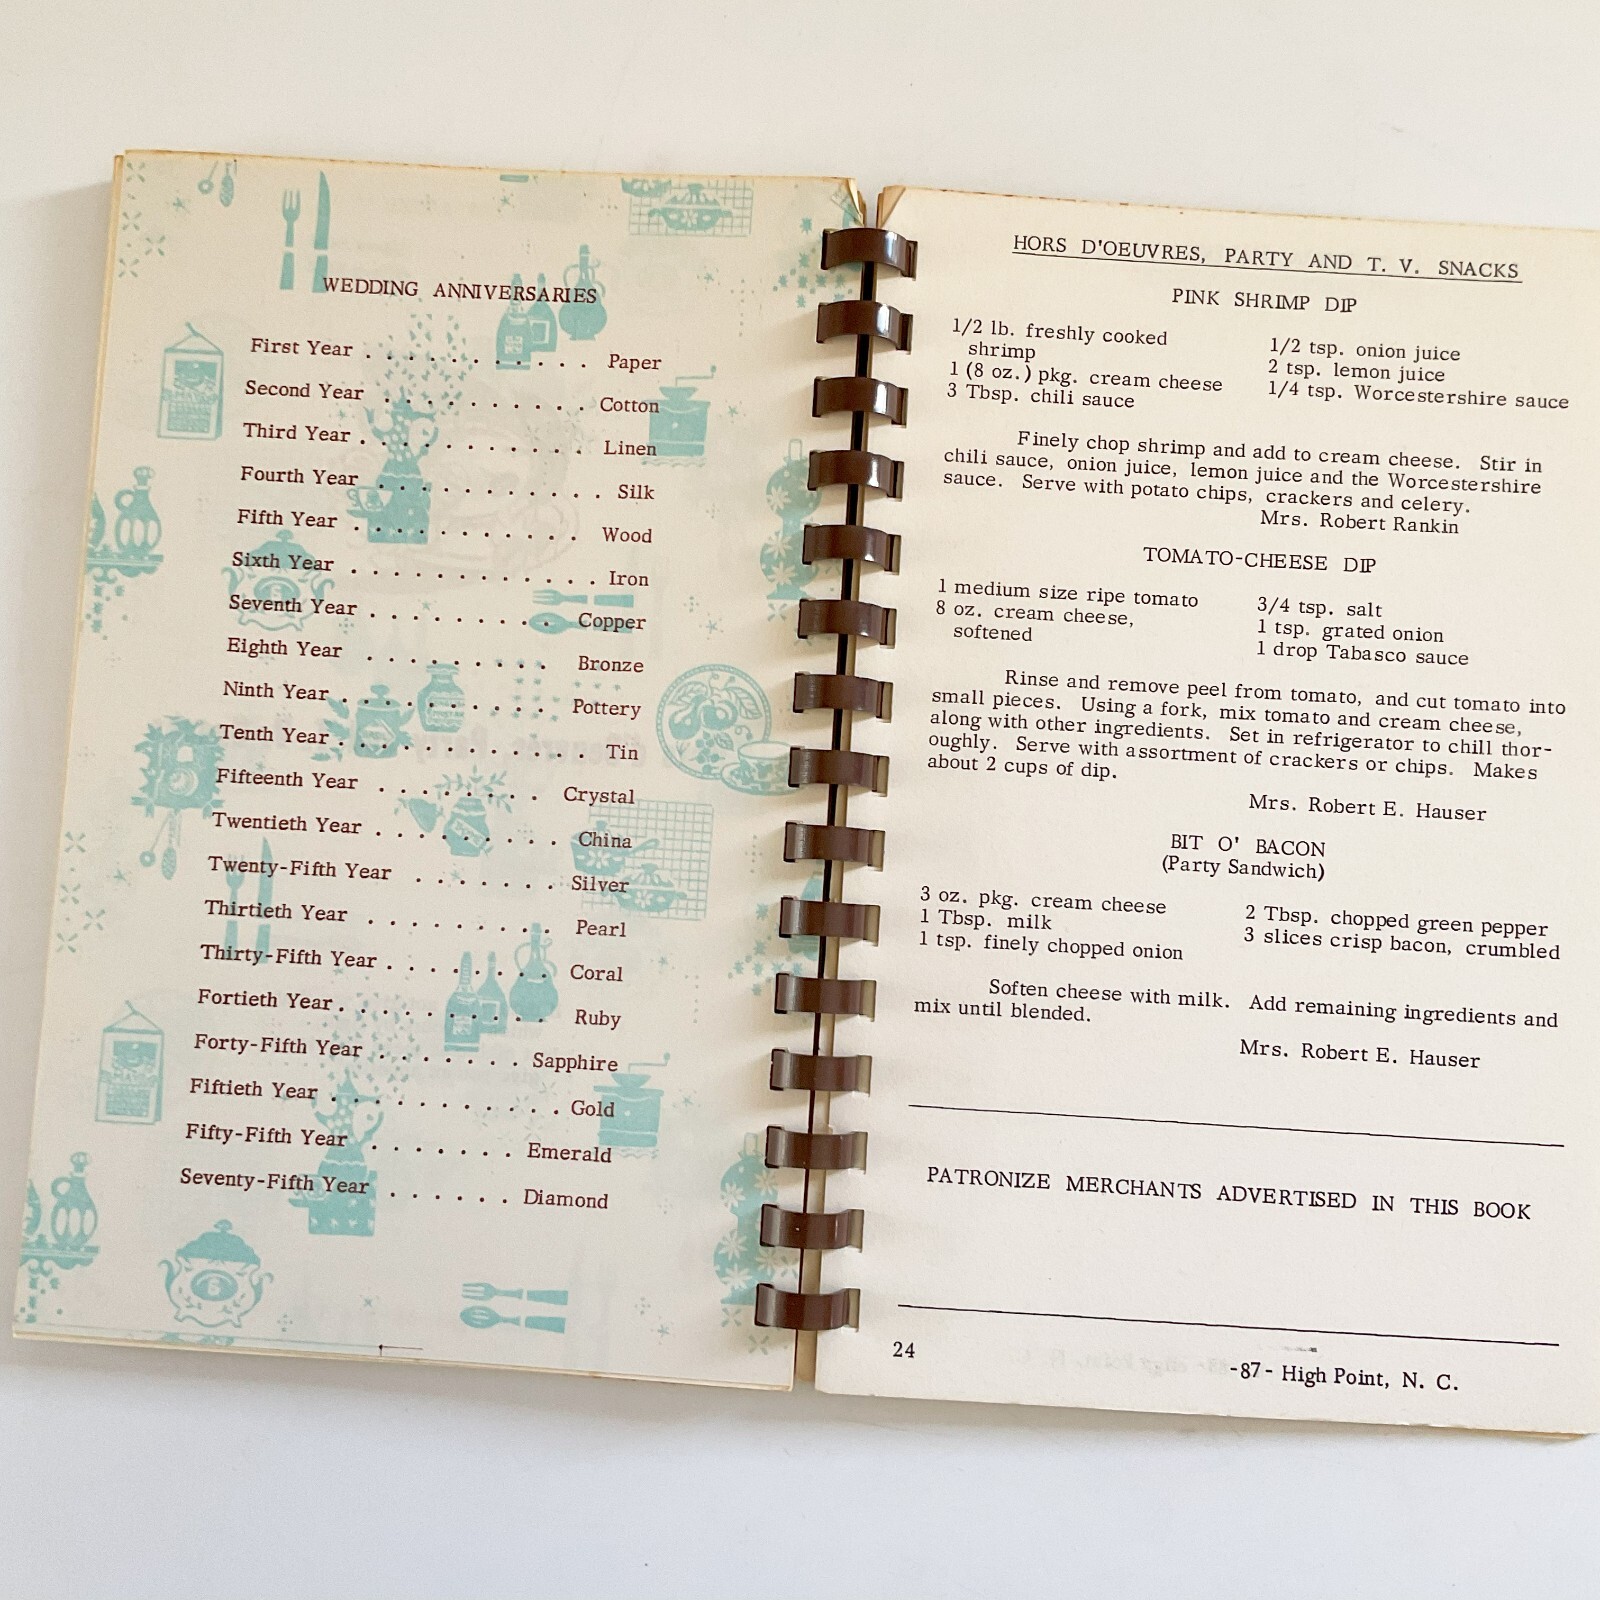 WEDDING ANNIVERSARIES
First Year . . . . . . . . . . . Paper
Second Year . . . . . . . . . . Cotton
Third Year . . . . . . . . . . . Linen
Fourth Year . . . . . . . . . . . Silk
Fifth Year . . . . . . . . . . . Wood
Sixth Year . . . . . . . . . . . . Iron
Seventh Year . . . . . . . . . Copper
Eighth Year . . . . . . . . . Bronze
Ninth Year . . . . . . . . . . Pottery
Tenth Year . . . . . . . . . . . . Tin
Fifteenth Year . . . . . . . . Crystal
Twentieth Year . . . . . . . . . China
Twenty-Fifth Year . . . . . . . Silver
Thirtieth Year . . . . . . . . . Pearl
Thirty-Fifth Year . . . . . . . Coral
Fortieth Year . . . . . . . . . . Ruby
Forty-Fifth Year . . . . . . . Sapphire
Fiftieth Year . . . . . . . . . . . Gold
Fifty-Fifth Year . . . . . . . Emerald
Seventy-Fifth Year . . . . . . Diamond
HORS D'OEUVRES, PARTY AND T. V. SNACKS
PINK SHRIMP DIP
1/2 lb. freshly cooked
shrimp
1 (8 oz.) pkg. cream cheese
3 Tbsp. chili sauce
1/2 tsp. onion juice
2 tsp. lemon juice
1/4 tsp. Worcestershire sauce
Finely chop shrimp and add to cream cheese. Stir in
chili sauce, onion juice, lemon juice and the Worcestershire
sauce. Serve with potato chips, crackers and celery.
Mrs. Robert Rankin
TOMATO-CHEESE DIP
1 medium size ripe tomato
8 oz. cream cheese,
softened
3/4 tsp. salt
1 tsp. grated onion
1 drop Tabasco sauce
Rinse and remove peel from tomato, and cut tomato into
small pieces. Using a fork, mix tomato and cream cheese,
along with other ingredients. Set in refrigerator to chill thor-
oughly. Serve with assortment of crackers or chips. Makes
about 2 cups of dip.
Mrs. Robert E. Hauser
BIT O' BACON
(Party Sandwich)
3 oz. pkg. cream cheese
1 Tbsp. milk
1 tsp. finely chopped onion
2 Tbsp. chopped green pepper
3 slices crisp bacon, crumbled
Soften cheese with milk. Add remaining ingredients and
mix until blended.
Mrs. Robert E. Hauser
PATRONIZE MERCHANTS ADVERTISED IN THIS BOOK
24
-87- High Point, N. C.